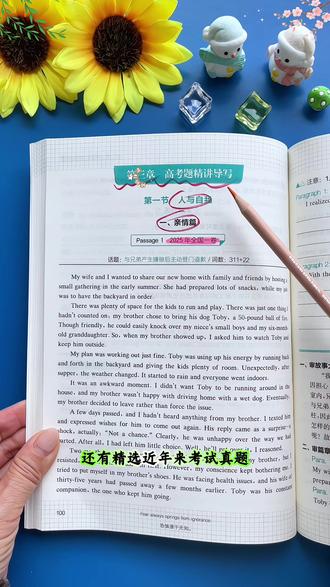 第三章 高考题精讲导写
第一节 人与自我
一、亲情篇
Passage 1 2025年全国一卷
话题:与兄弟产生嫌隙后主动登门道歉 / 词数:311+22
My wife and I wanted to share our new home with family and friends by hosting a
small gathering in the early summer. She had prepared lots of snacks, while my job
was to have the backyard in order.
There was plenty of space for the kids to run and play. There was just one thing I
hadn't counted on: my brother chose to bring his dog Toby, a 50-pound ball of fire.
Though friendly, he could easily knock over my niece's small boys and my six-month-
old granddaughter. So, when my brother showed up, I asked him to watch Toby and
keep him outside.
My plan was working out just fine. Toby was using up his energy by running back
and forth in the backyard and giving the kids plenty of room. Unexpectedly, after
supper, the weather changed. It started to rain and everyone went indoors.
It was an awkward moment. I didn't want Toby to be running around in the
house, and my brother wasn't happy with driving home with a wet dog. Eventually,
my brother decided to leave rather than force the issue.
A few days passed, and I hadn't heard anything from my brother. I texted him
and expressed wishes for him to come out again. His reply came as a surprise
shock, actually: "Not a chance." Clearly, he was unhappy over the way we had
parted. After all, I had left him little choice. Well, he'll get over it, I reasoned.
Two
resisted
my brother, but I
However, my conscience kept bothering me. I
tried to put myself in my brother's shoes. He was facing health issues, and his wife of
thirty-five years had passed away a few months earlier. Toby was his constant
companion, the one who kept him going.
还有精选近年来考试真题
100
Fear always springs from ignorance.
恐惧源于无知。
注意:
Paragraph 1
I realized
Paragraph 2
With the
一、审故事
因担心
室内,兄
与兄弟
柱,因此
怎样的
二、审篇章
Para.
My w
Para.
With